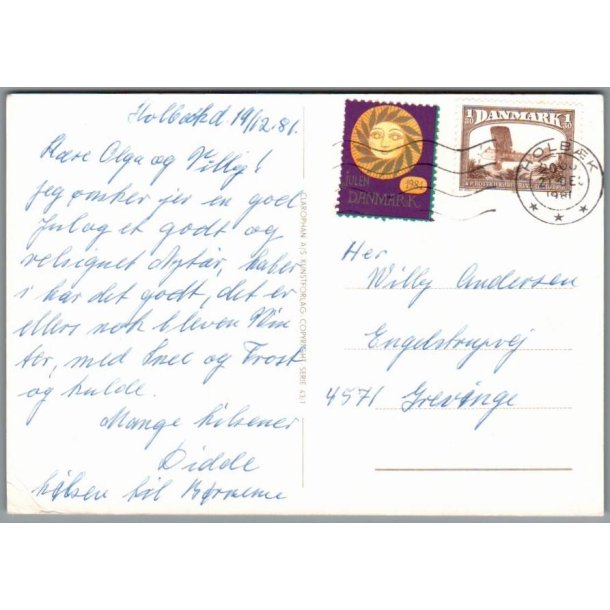 Holbæk d. 19/12.81.
Kære Olga og Villy!
Jeg ønsker jer en god
Jul og et godt og
velsignet Nytår, haaber
i har det godt, det er
ellers nok bleven Vin
ter, med Snee og Frost
og kulde.
Mange hilsener
Didde
hilsen til Børnene
CLAROPHAN A/S KUNSTFORLAG COPYRIGHT SERIE
JULEN
1981
DANMARK
1 80 DANMARK 1 30
HOLBÆK
1981
Hr
Willy Andersen
Engelstrupvej
4571 Grevinge